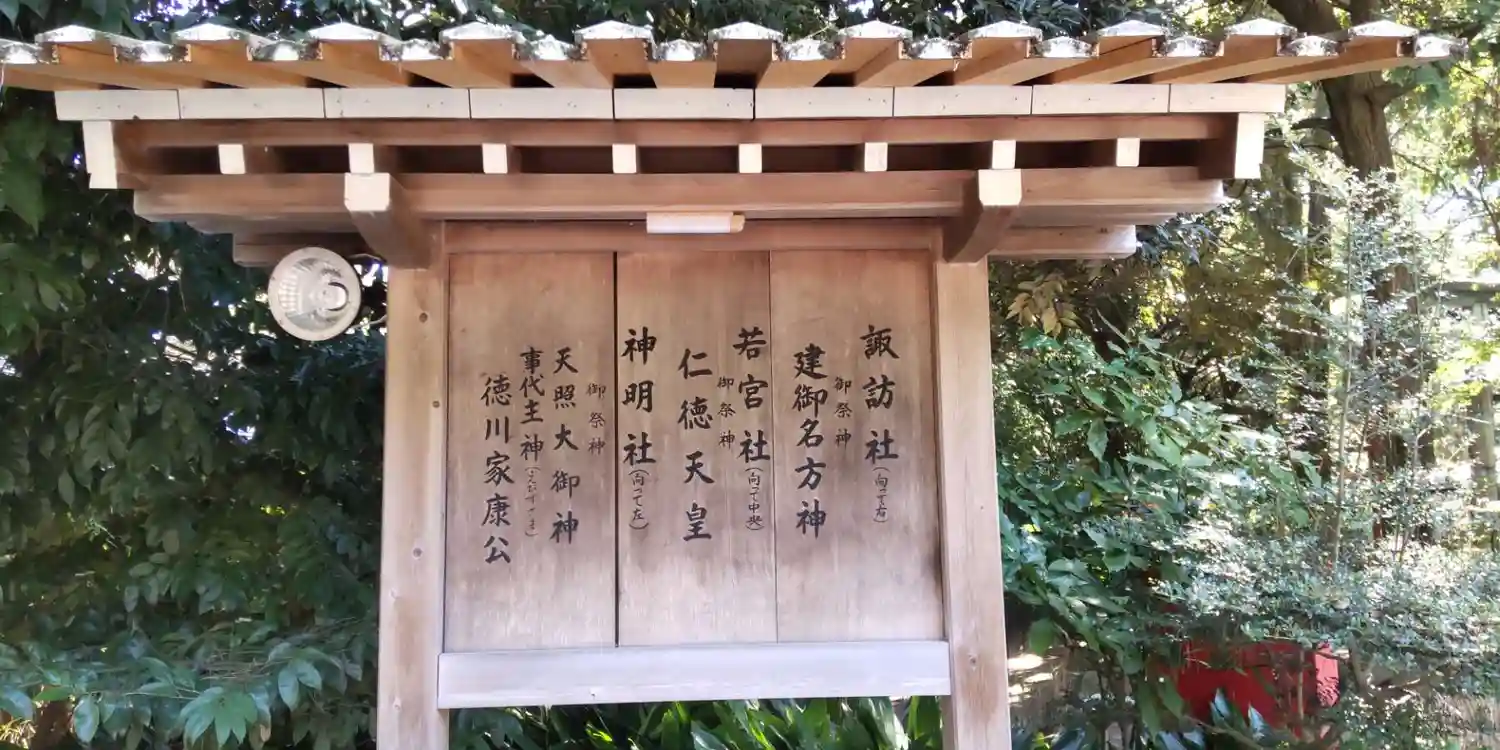 諏訪社（向って右）
御祭神
建御名方神
若宮社（向って中央）
御祭神
仁徳天皇
神明社（向って左）
御祭神
天照大御神
事代主神（えびすさま）
徳川家康公